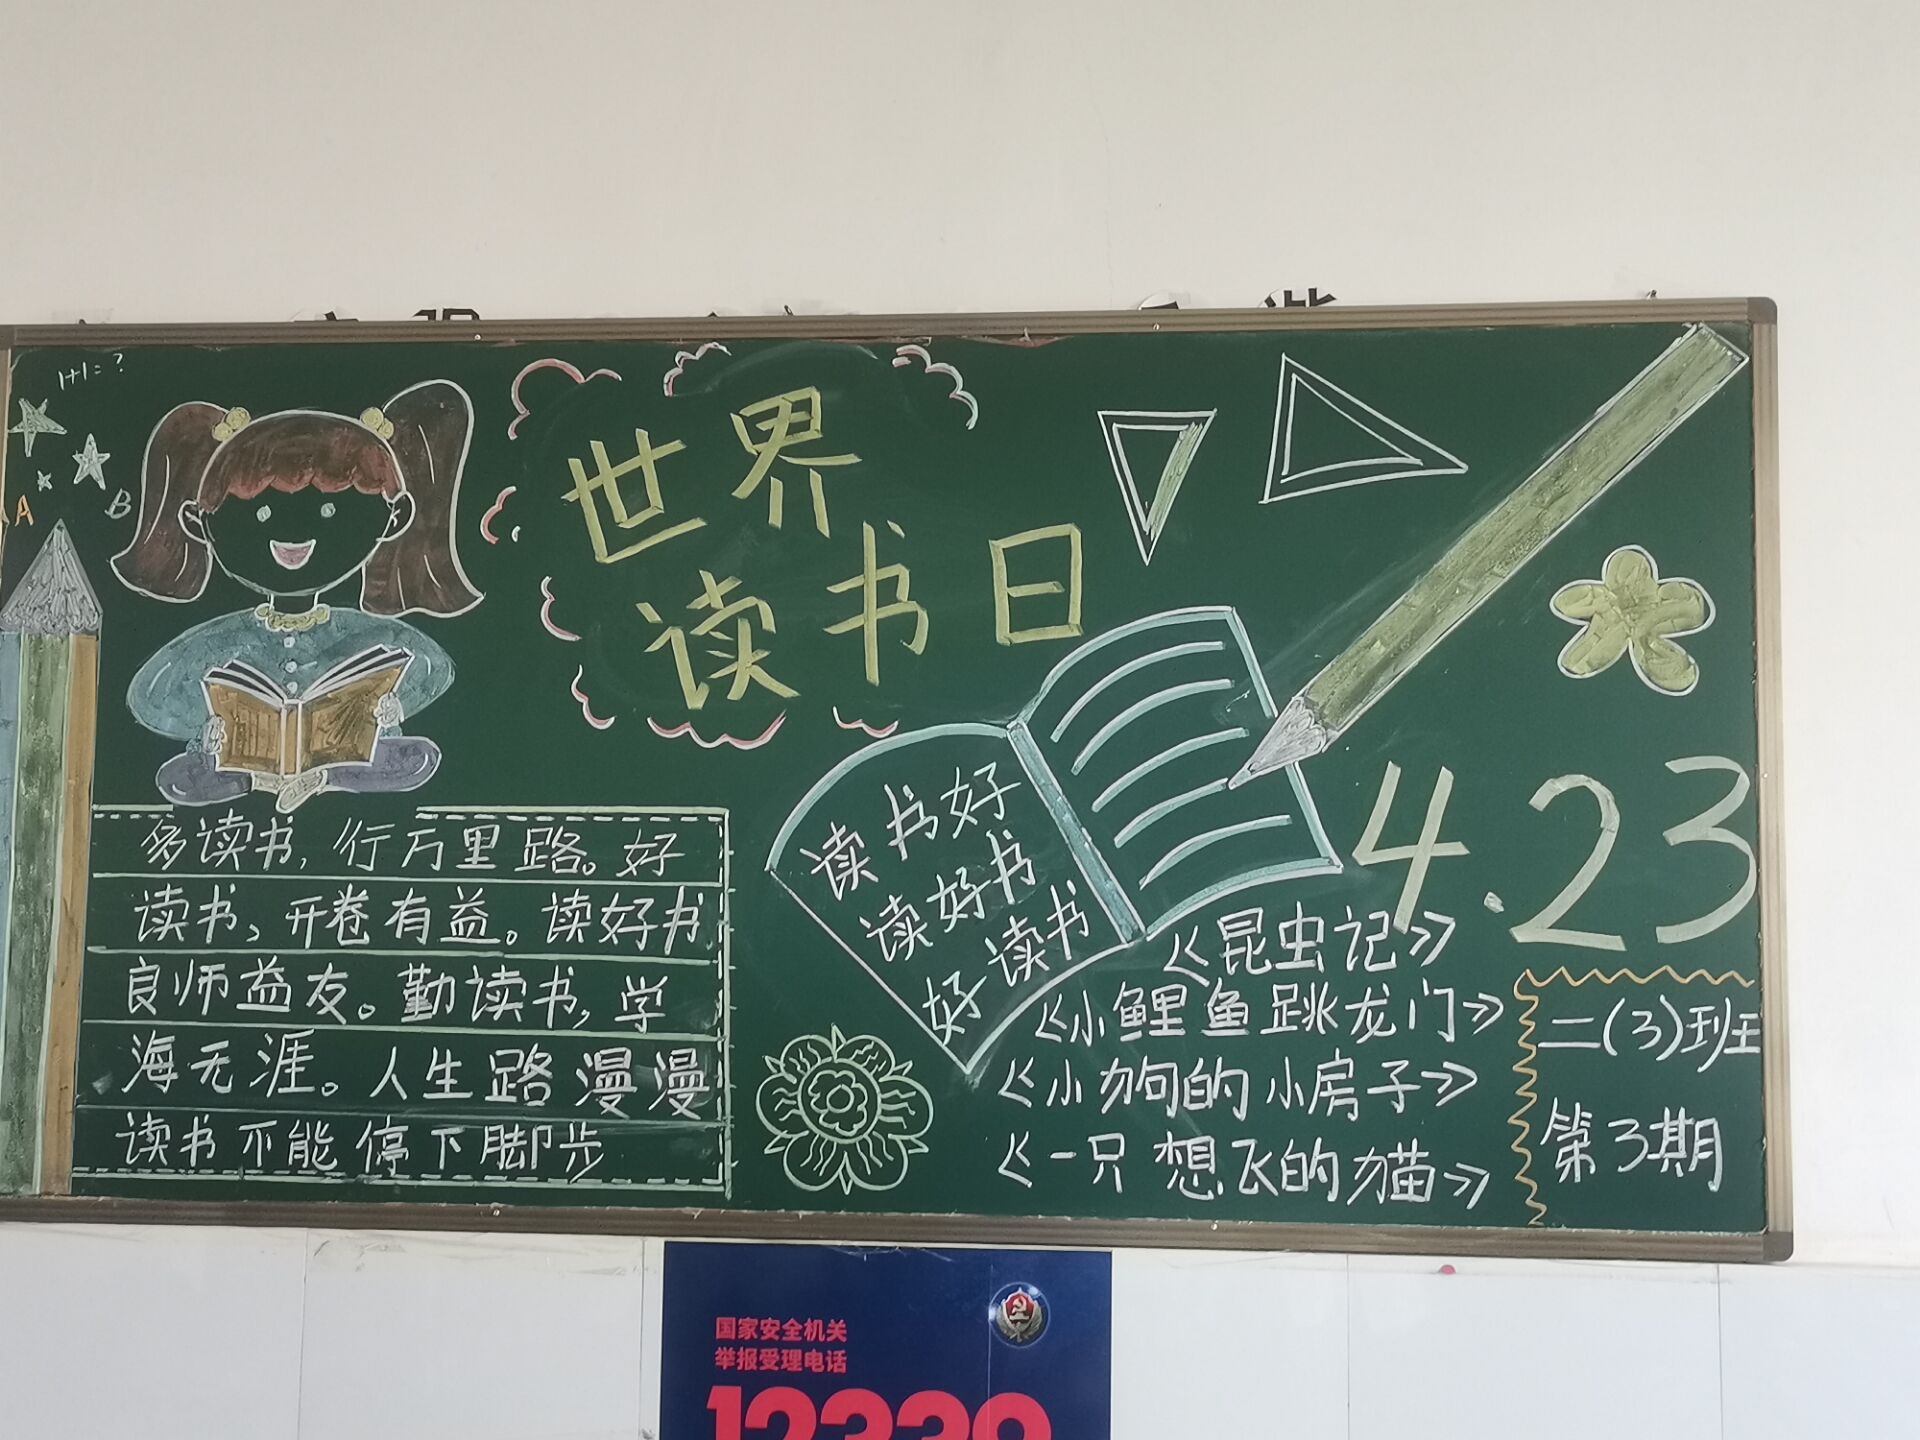 1+1=?
A
B
世界
读书日
多读书,行万里路。好
读书,开卷有益。读好书
良师益友。勤读书,学
海无涯。人生路漫漫
读书不能停下脚步
读书好
读好书
好读书
4.23
《昆虫记》
《小鲤鱼跳龙门》
《小狗的小房子》
《一只想飞的猫》
二(3)班
第3期
国家安全机关
举报受理电话
12339